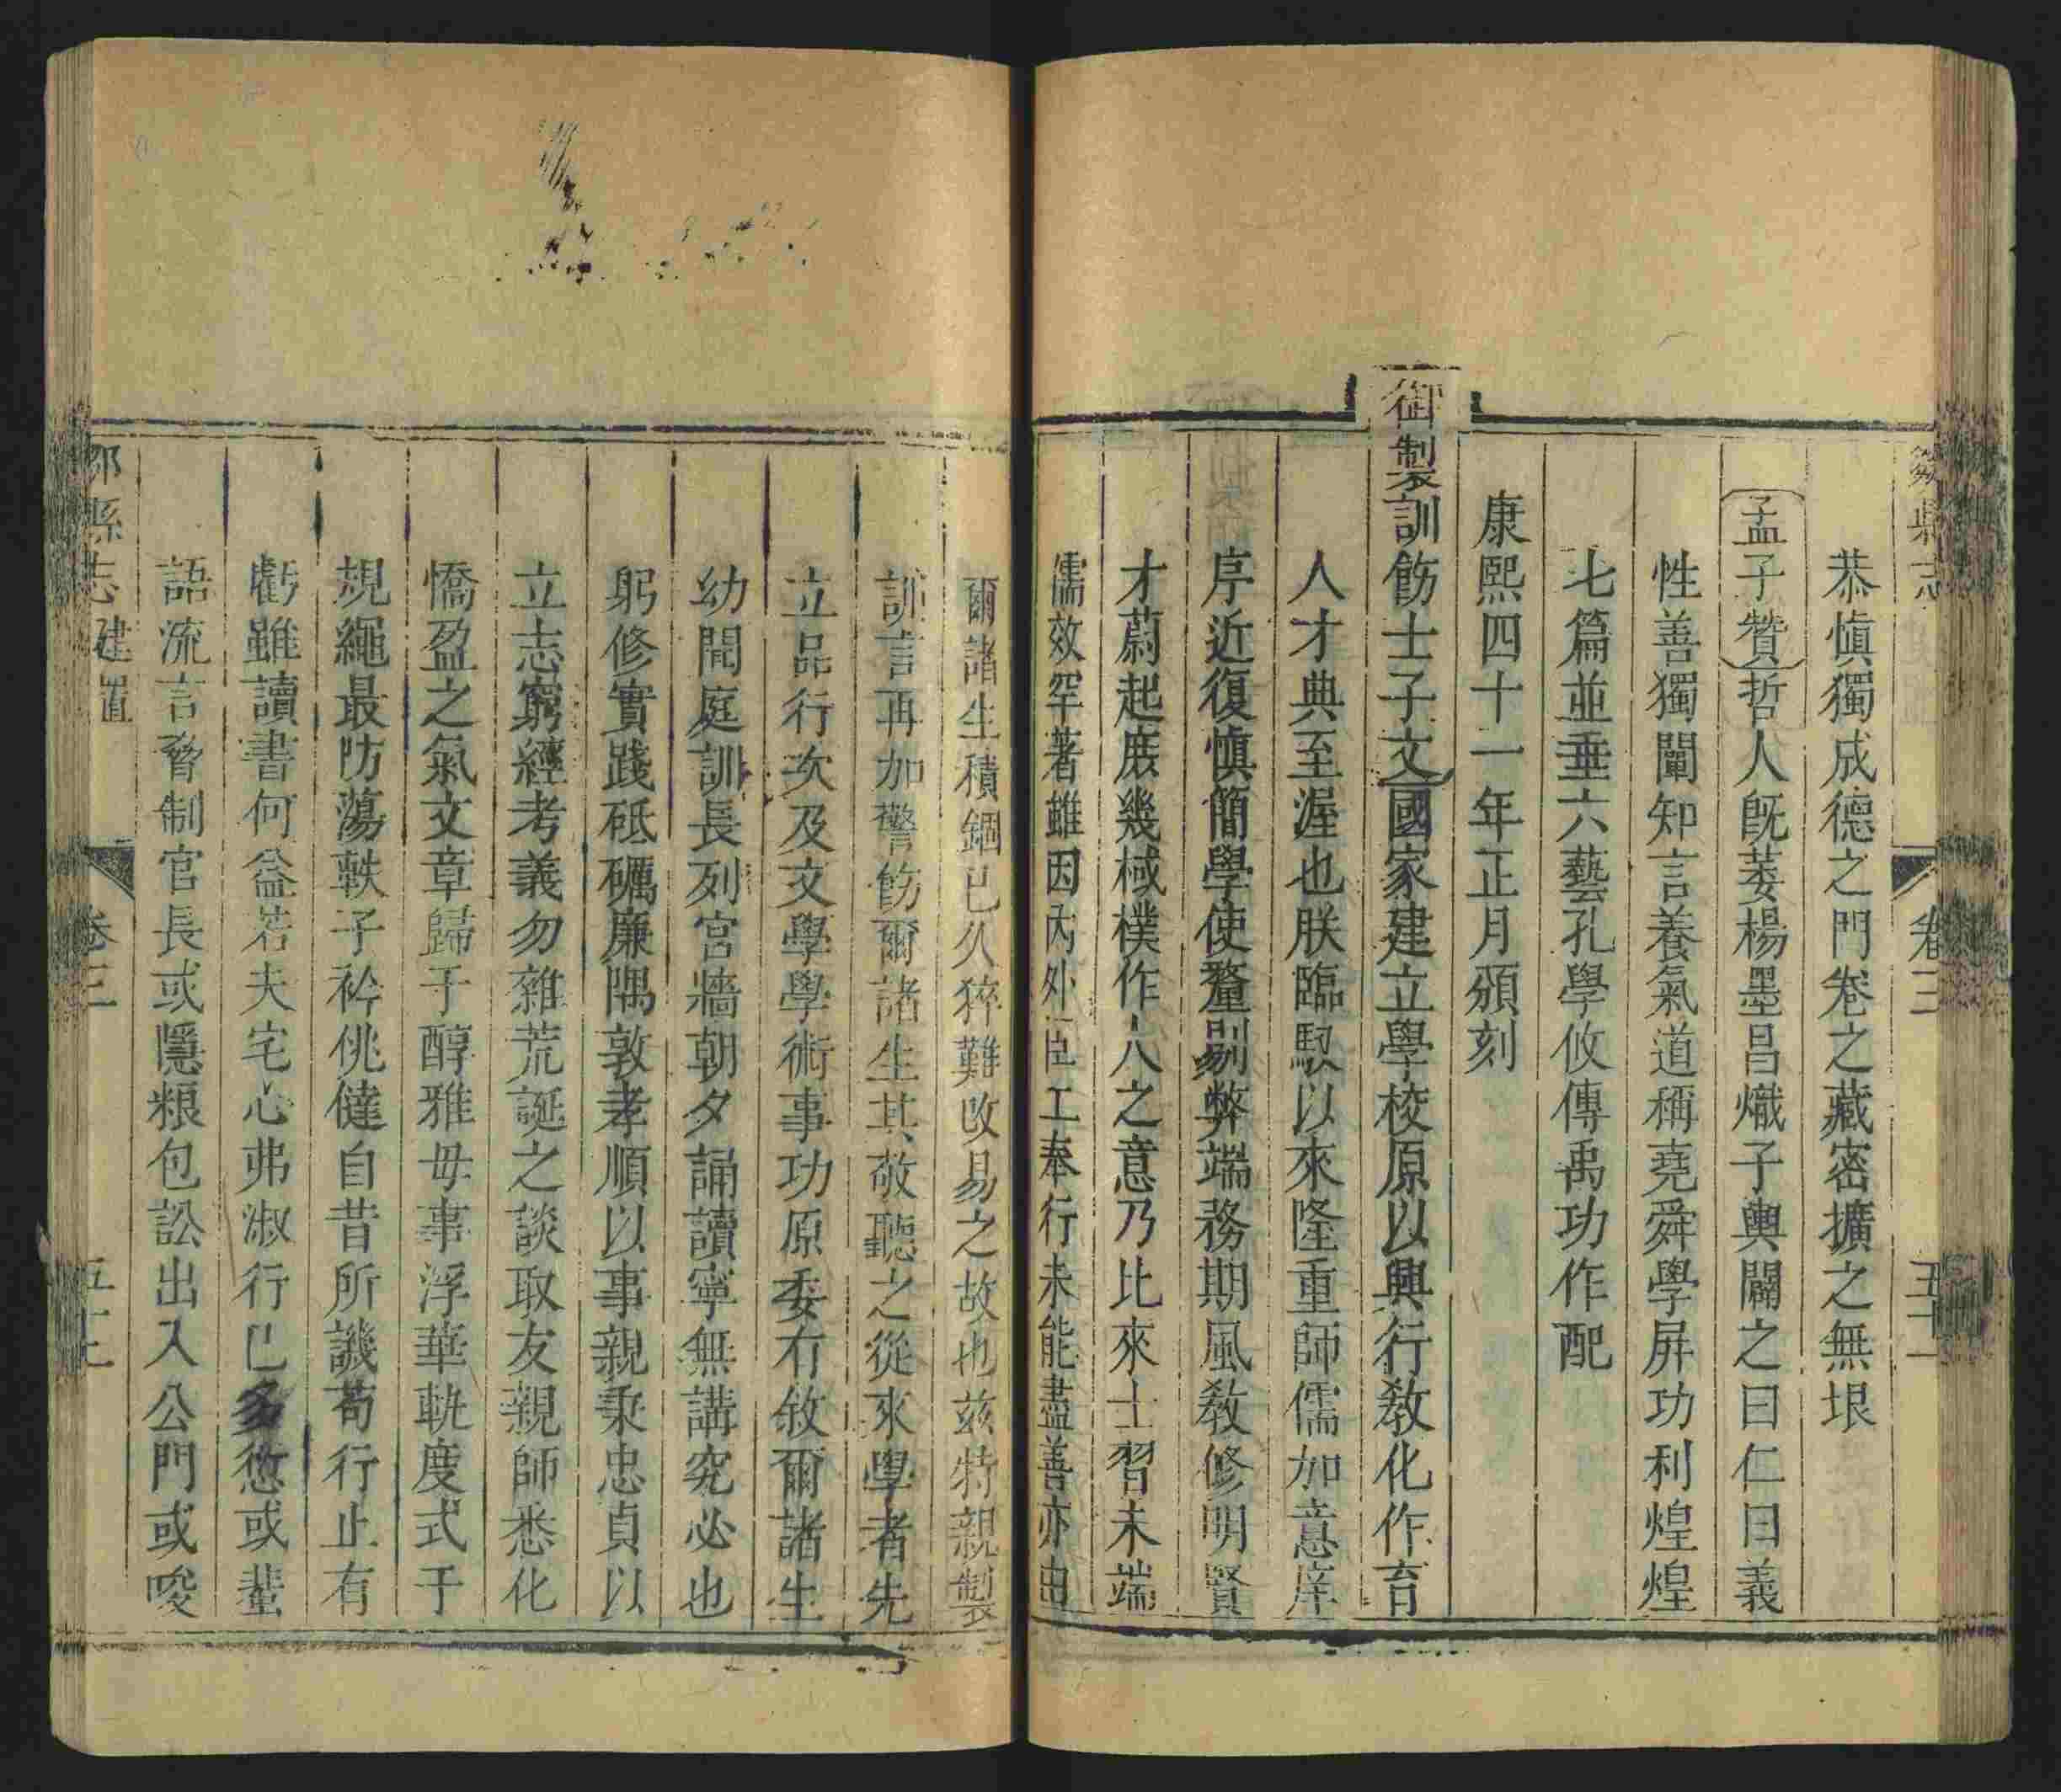 鄒縣志
卷三
五十一
恭愼獨成德之門卷之藏密擴之無垠
孟子贊哲人旣萎楊墨昌熾子輿闢之曰仁曰義
性善獨闡知言養氣道稱堯舜學屏功利煌煌
七篇並垂六藝孔學攸傳禹功作配
康熙四十一年正月頒刻
御製訓飭士子文國家建立學校原以興行敎化作育
人才典至渥也朕臨馭以來隆重師儒加意庠
序近復愼簡學使釐剔弊端務期風敎修明賢
才蔚起庶幾棫樸作人之意乃比來士習未端
儒效罕著雖因內外臣工奉行未能盡善亦由
爾諸生積錮已久猝難改易之故也茲特親製
訓言再加警飭爾諸生其敬聽之從來學者先
立品行次及文學學術事功原委有敘爾諸生
幼聞庭訓長列宮牆朝夕誦讀寧無講究必也
躬修實踐砥礪廉隅敦孝順以事親秉忠貞以
立志窮經考義勿雜荒誕之談取友親師悉化
憍盈之氣文章歸于醇雅毋事浮華軌度式于
規繩最防蕩軼子衿佻㒓自昔所譏苟行止有
虧雖讀書何益若夫宅心弗淑行已多愆或蜚
語流言脅制官長或隱粮包訟出入公門或唆
鄒縣志建置
卷三